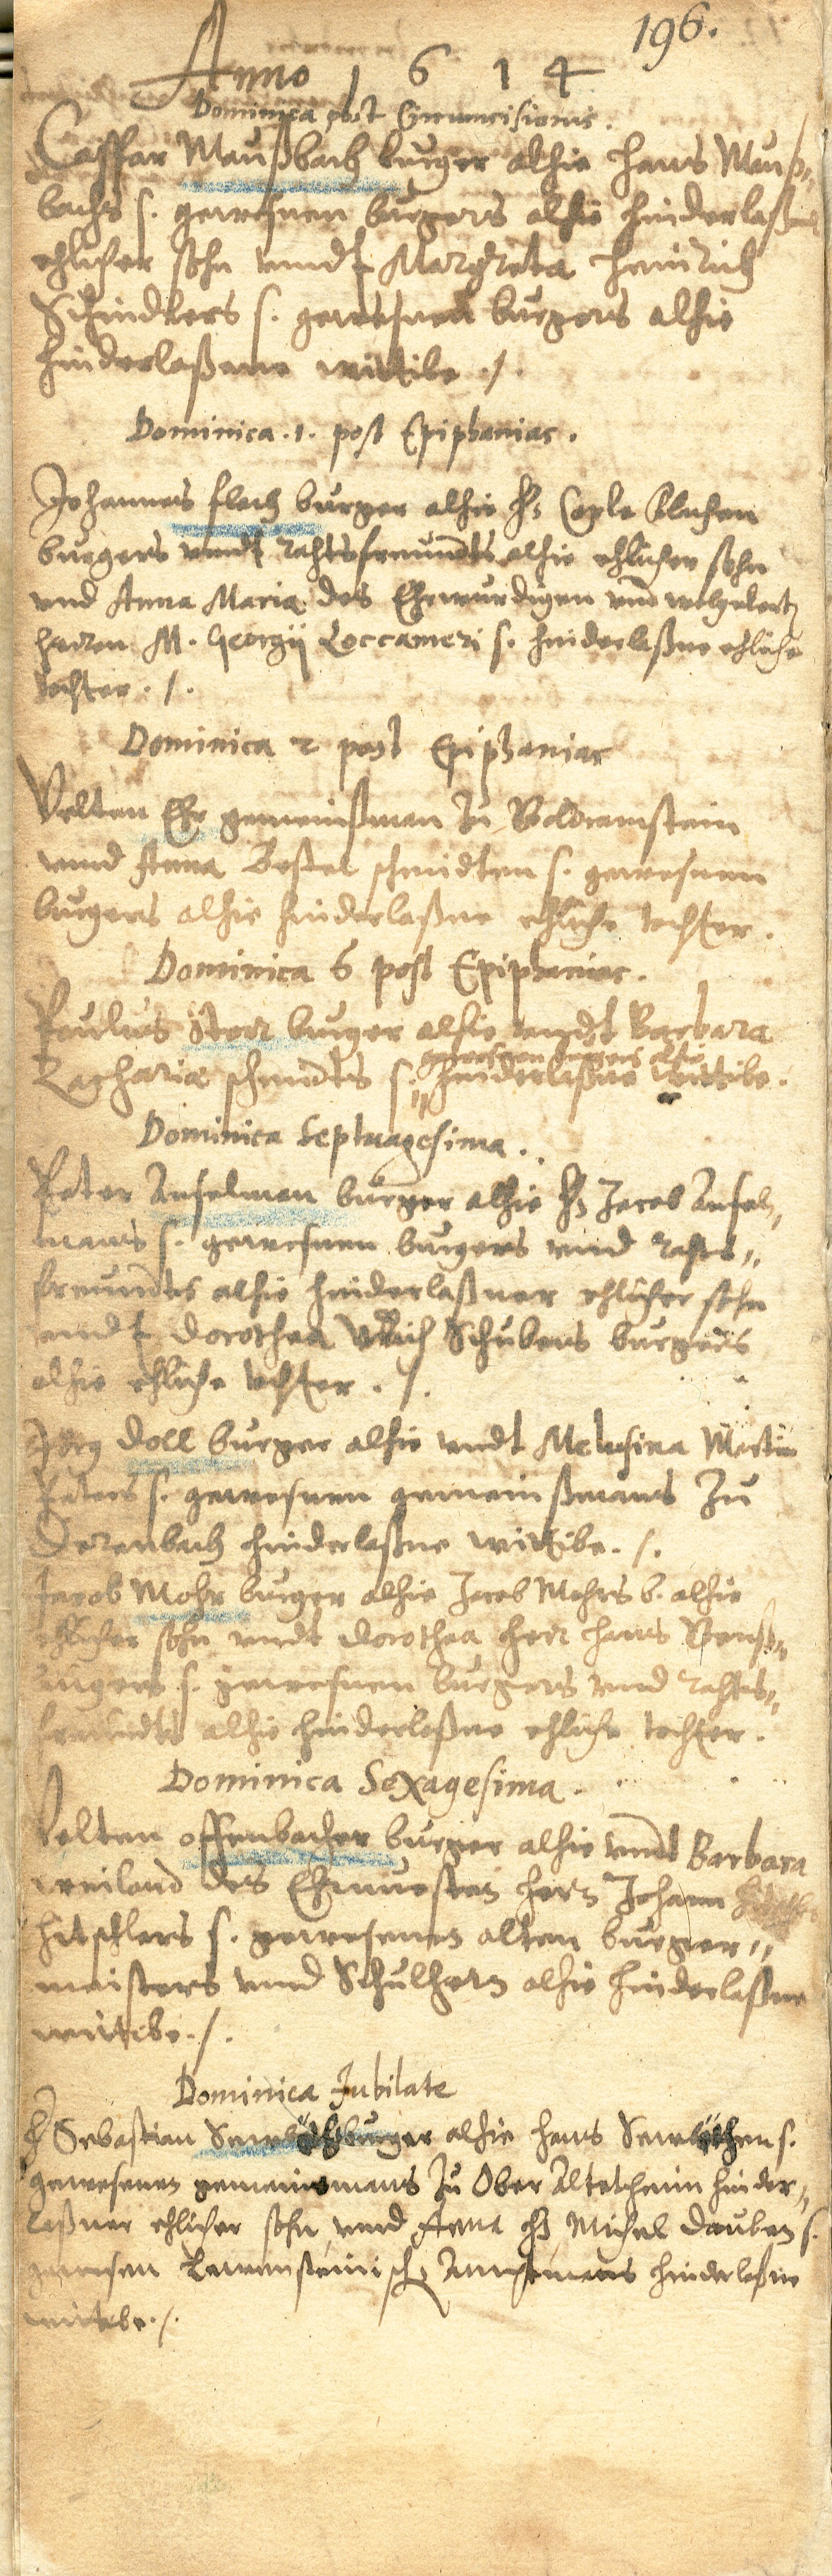 196.
Anno 1614
Dominica post Circumcisionis.
Caspar Maußbach burger alhie Hans Mauß-
bachs s. gewesnen burgers alhie hinderlaßner
ehlicher sohn undt Margreta Heinrich
Schindlers s. gewesnen burgers alhie
hinderlaßene wittibe ./.
Dominica .1. post Epiphanias.
Johannes Flach burger alhie H.
burgers undt rahtsfreundts alhie ehlicher sohn
und Anna Maria des Ehrwürdigen und wolgelert
herren M. Georgii Loccameri s. hinderlaßne ehliche
tochter ./.
Dominica 2 post Epiphanias
Velten Ehr gemeinßman zu
unnd Anna schmidten s. gewesnen
burgers alhie hinderlaßne ehliche tochter.
Dominica 6 post Epiphanias.
Paulus Storr burger alhie undt Barbara
gewesnen burgers alhie
Zachariae schmidts s. hinderlaßne wittibe.
Dominica Septuagesima.
Peter Anselman burger alhie H. Jacob Ansel-
mans s. gewesnen burgers und rahts-
freundts alhie hinderlaßner ehlicher sohn
undt Dorothea Ulrich Schubers burgers
alhie ehliche tochter ./.
Jörg Doll burger alhie undt Melusina Martin
Peters s. gewesnen gemeinßmans zu
Derenbach hinderlaßne wittibe ./.
Jacob Mohr burger alhie Jacob Mohrs b. alhie
ehlicher sohn undt Dorothea Herr Hans
s. gewesnen burgers und rahts-
freundts alhie hinderlaßne ehliche tochter.
Dominica Sexagesima.
Velten Offenbacher burger alhie undt Barbara
weiland des Ehrnvesten Hern Johann
Hitschlers s. gewesenen alten burger-
meisters und Schulhern alhie hinderlaßne
wittibe ./.
Dominica Jubilate
H. Sebastian burger alhie Hans s.
gewesenen gemeinsmans zu Ober hinder-
laßner ehlicher sohn und Anna H. Michel Dauben s.
gewesen Lewensteinisch Amptmans hinderlaßne
wittibe ./.